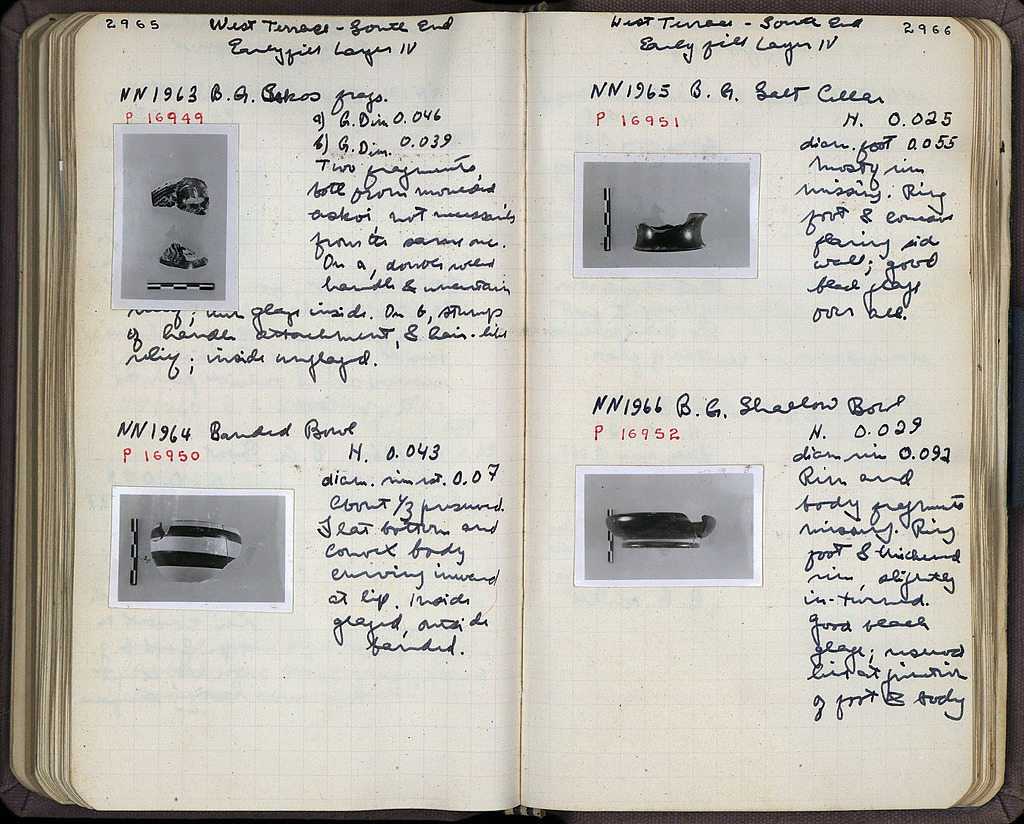 2965
West Terrace - South End
Early fill Layer IV
NN1963 B.G. Askos frags.
P 16949
a) G. Dim 0.046
b) G. Dim. 0.039
Two fragments,
both from moulded
askoi not necessarily
from the same one.
On a, double reed
handle & uncertain
relief; thin glaze inside. On b, stump
of handle attachment, & hair-like
relief; inside unglazed.
NN1964 Banded Bowl
P 16950
H. 0.043
diam. rim rst. 0.07
About 1/3 preserved.
Flat bottom and
convex body
curving inward
at lip. Inside
glazed, outside
banded.
West Terrace - South End
2966
Early fill Layer IV
NN1965 B.G. Salt Cellar
P 16951
H. 0.025
diam. foot 0.055
Mostly rim
missing. Ring
foot & concave
flaring side
wall; good
black glaze
over all.
NN1966 B.G. Shallow Bowl
P 16952
H. 0.029
diam rim 0.092
Rim and
body fragments
missing. Ring
foot & thickened
rim, slightly
in-turned.
Good black
glaze; reserved
line at junction
of foot & body